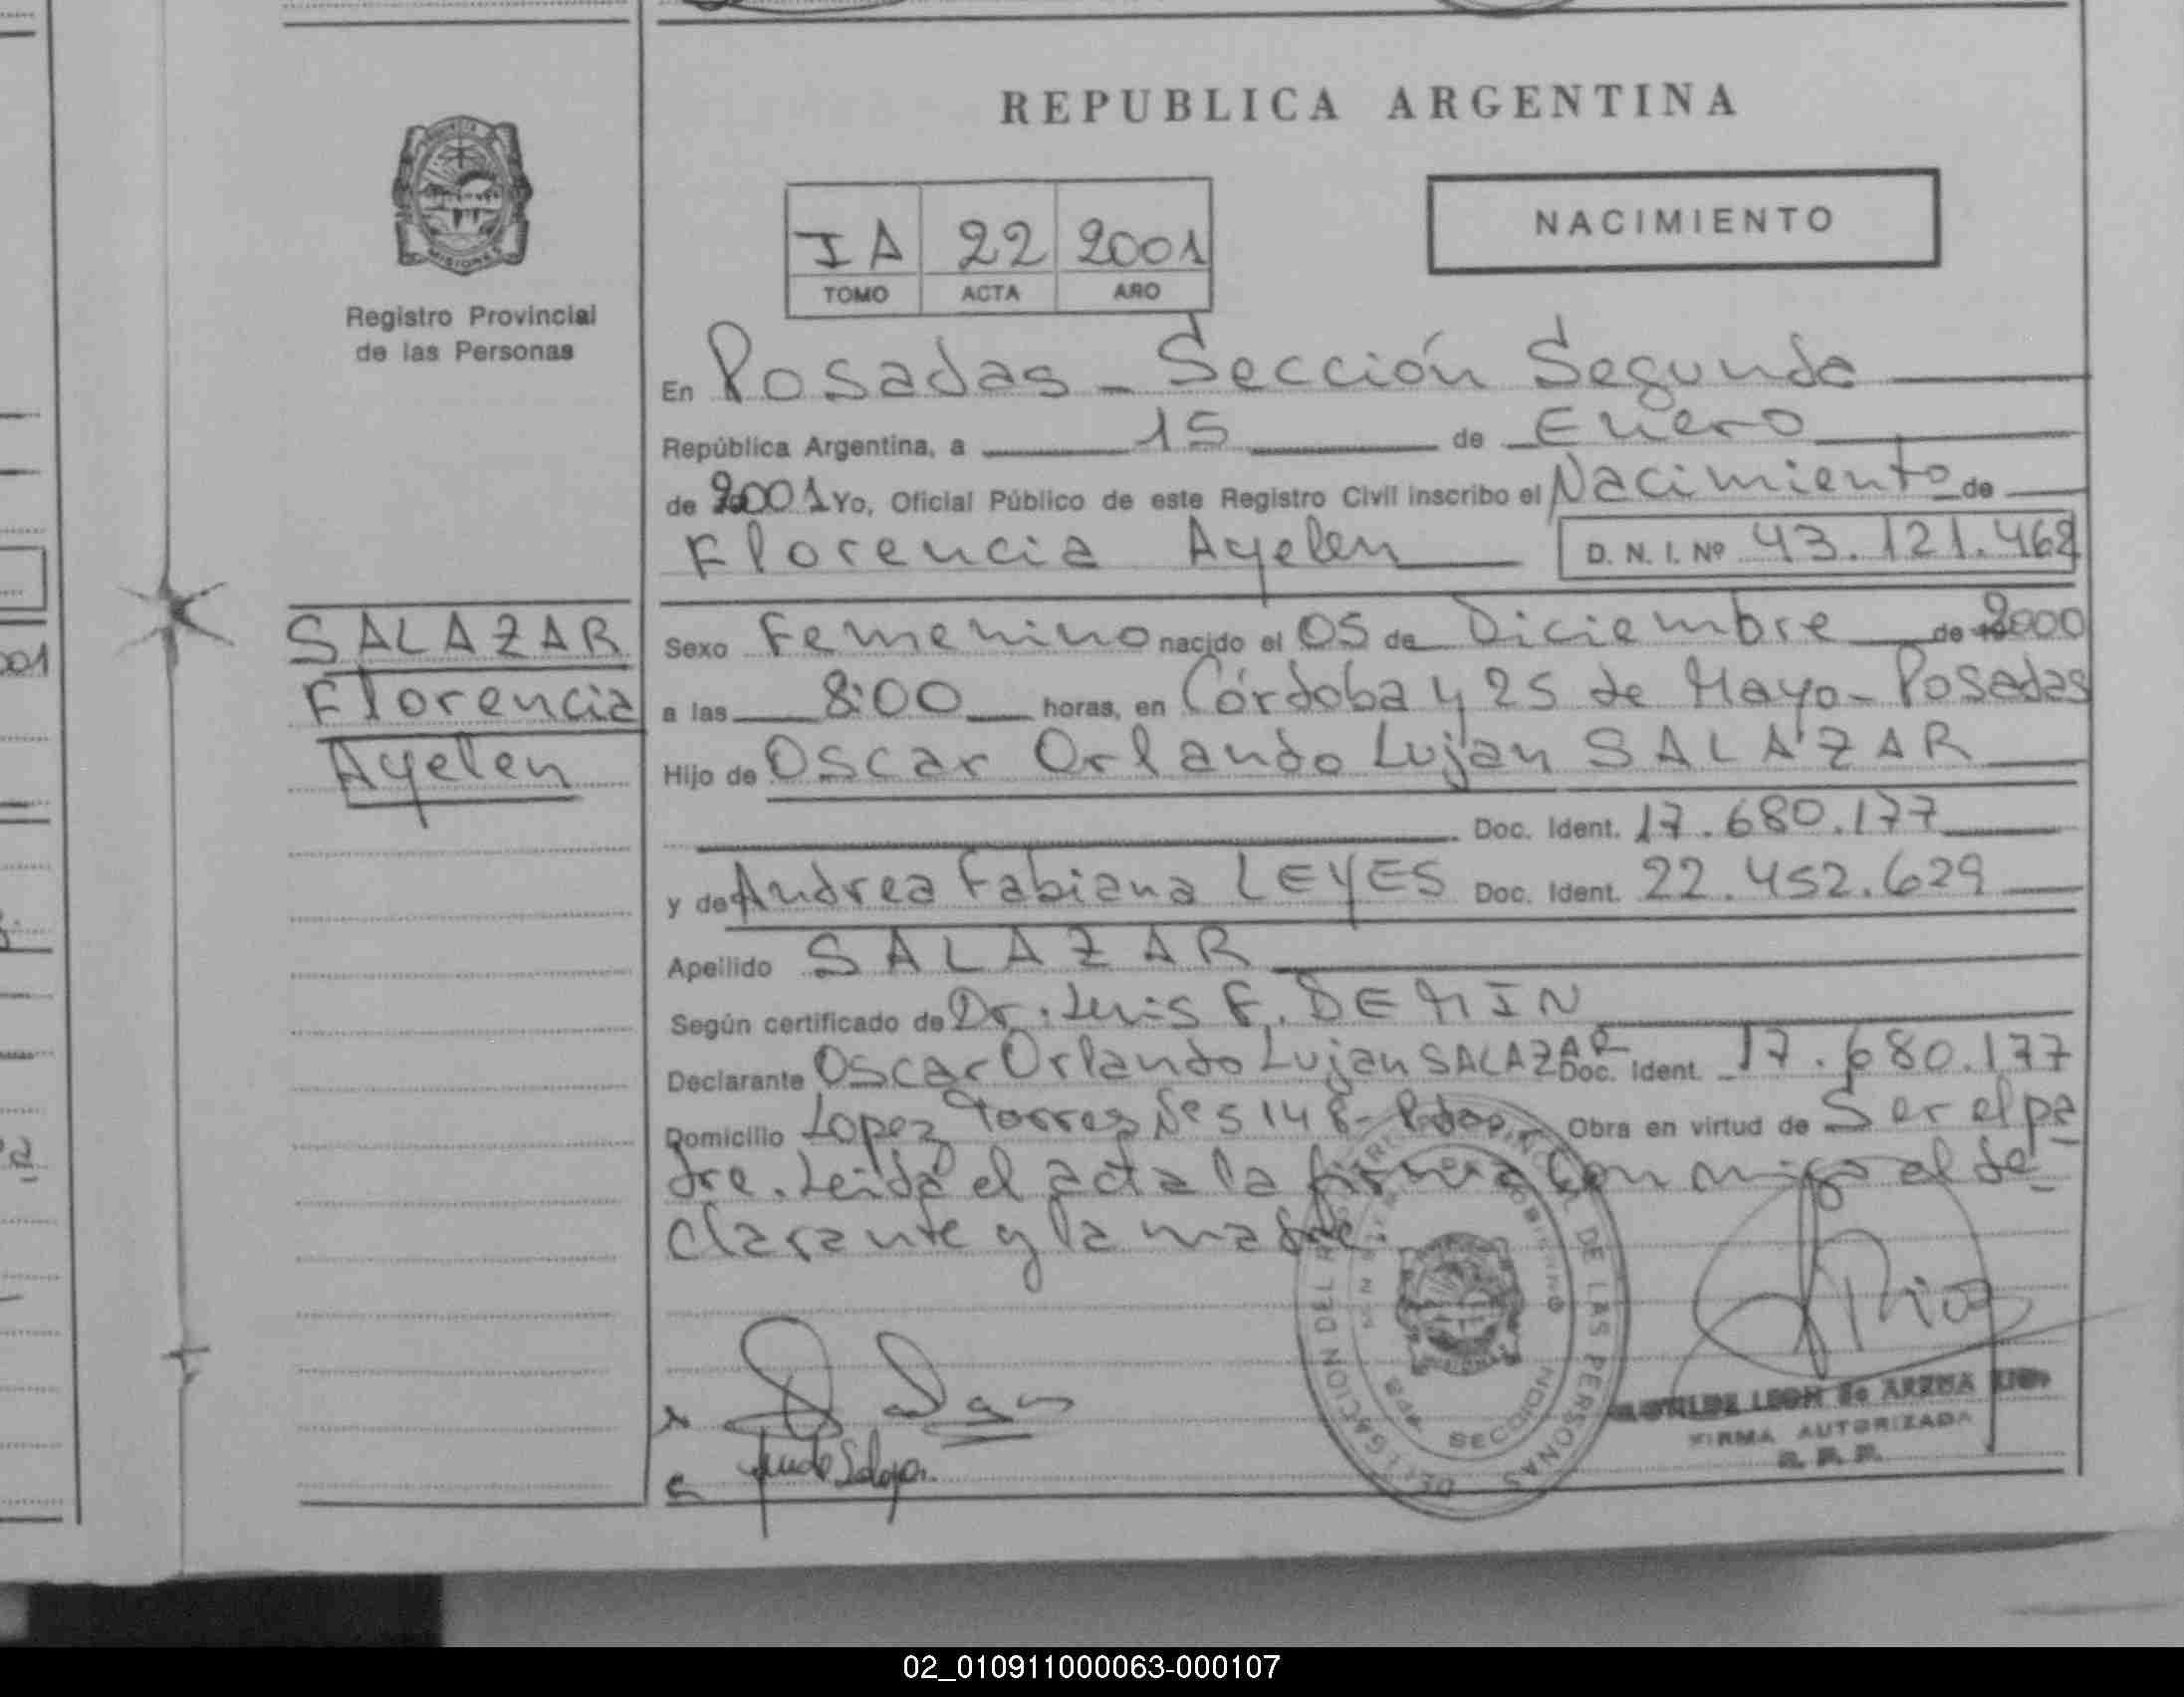 REPUBLICA ARGENTINA
NACIMIENTO
IA 22 2001
TOMO ACTA AÑO
MISIONES
Registro Provincial
de las Personas
En Posadas - Sección Segunda
República Argentina, a 15 de Enero
de 2001 Yo, Oficial Público de este Registro Civil inscribo el Nacimiento de
Florencia Ayelen D. N. I. Nº 43.121.468
SALAZAR
Florencia
Ayelen
Sexo Femenino nacido el 05 de Diciembre de 2000
a las 8:00 horas, en Córdoba y 25 de Mayo - Posadas
Hijo de Oscar Orlando Lujan SALAZAR
Doc. Ident. 17.680.177
y de Andrea Fabiana LEYES Doc. Ident. 22.452.629
Apellido SALAZAR
Según certificado de Dr. Luis F. DEMIN
Declarante Oscar Orlando Lujan SALAZAR Doc. Ident. 17.680.177
Domicilio Lopez Torres Nº 5148 - Pdas. Obra en virtud de Ser el pa
dre. Leida el acta la firma conmigo el de
clarante y la madre.
DELEGACION DEL REGISTRO PROVINCIAL DE LAS PERSONAS
SECCION
LEON de ARZNA
FIRMA AUTORIZADA
02_010911000063-000107